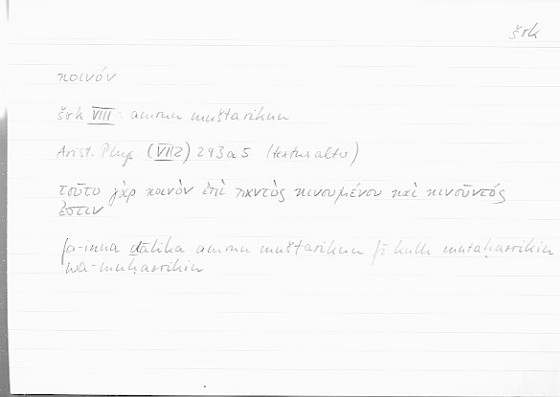 šrk
κοινόν
šrk VIII: amrun muštarikun
Arist. Phys. (VII 2) 243 a 5 (textus alter)
τοῦτο γὰρ κοινὸν ἐπὶ παντὸς κινουμένου καὶ κινοῦντός
ἐστιν
fa-inna ḏālika amrun muštarikun fī kulli mutaḥarrikin
wa-muḥarrikin